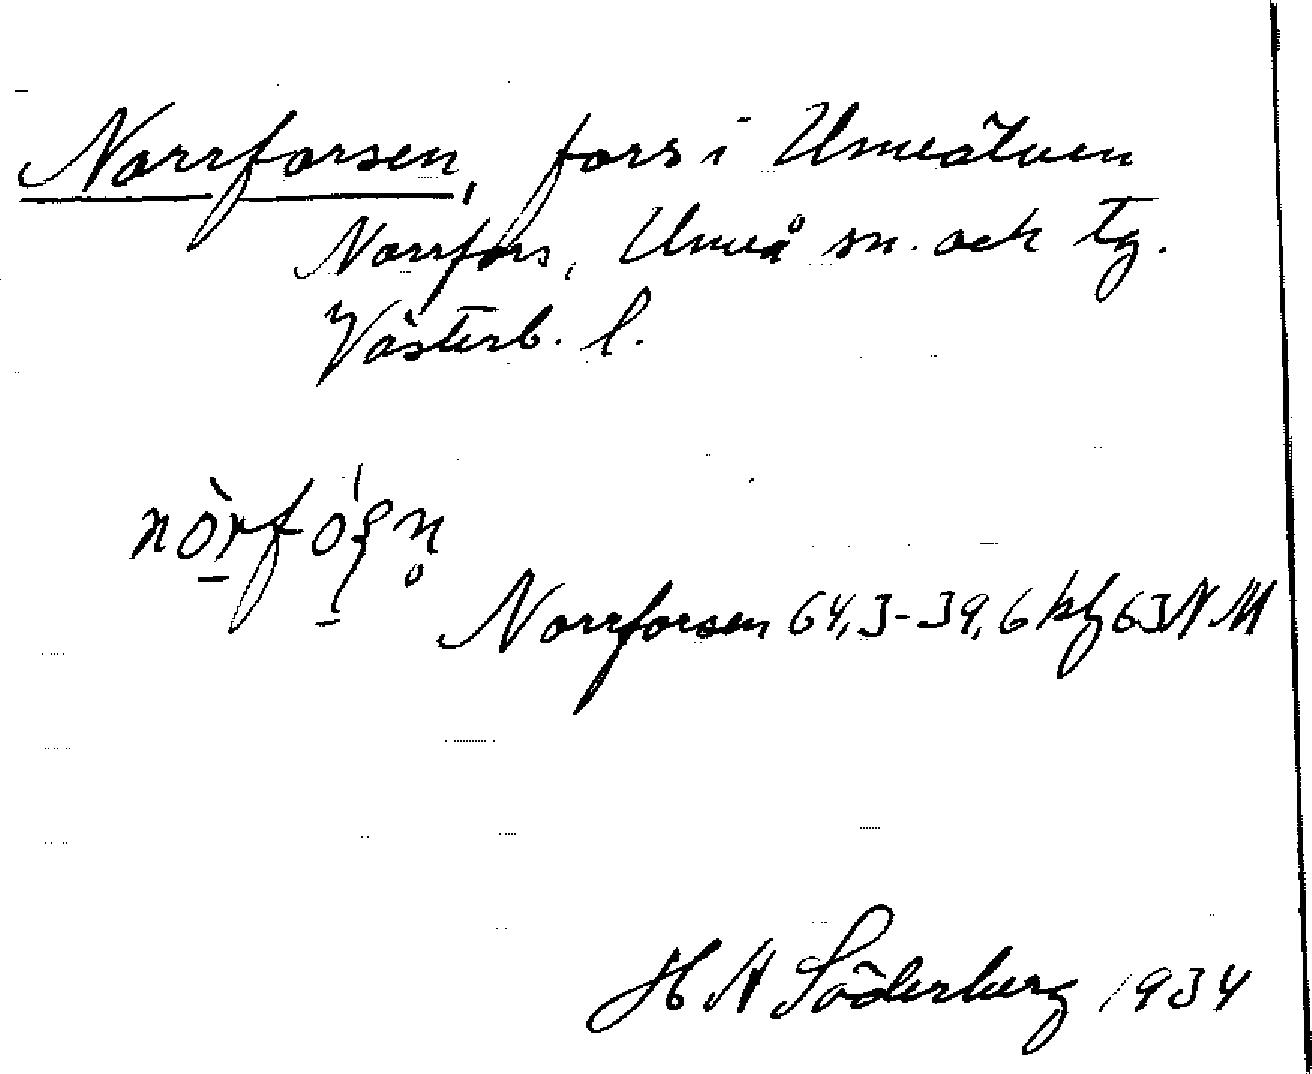 Norrforsen, fors i Umeälven
Norrfors, Umeå sn. och tg.
Västerb. l.
Norrforsen 64,3-39,6 kbf 63 NM
H A Söderberg 1934